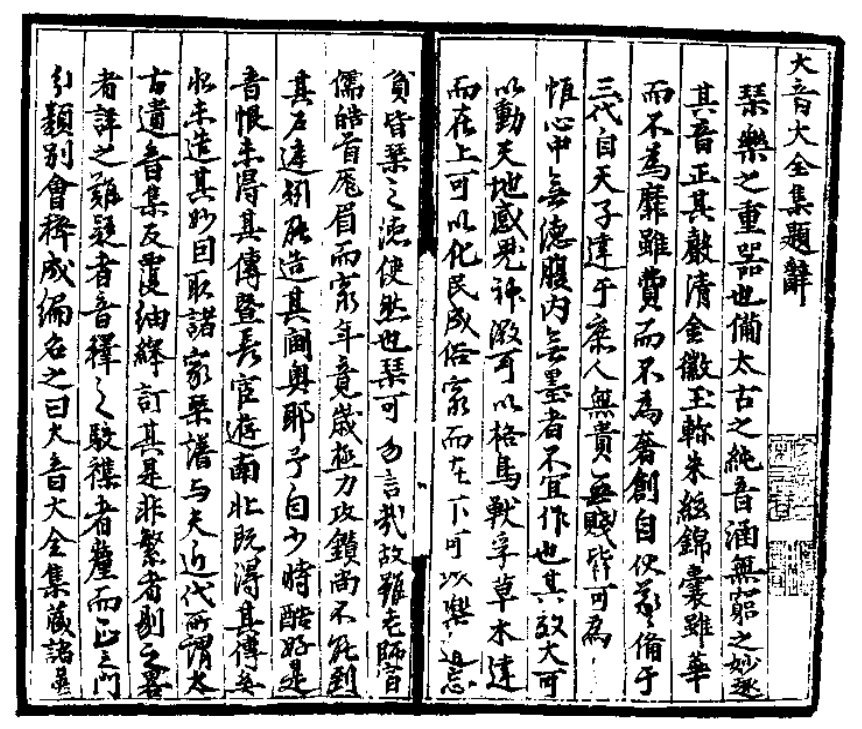 大音大全集題辭
琴樂之重器也備太古之純音涵無窮之妙趣
其音正其聲清金徽玉軫朱絃錦囊雖華
而不為靡雖費而不為奢創自伏羲備于
三代自天子達于庶人無貴無賤皆可為
惟心中無德腹内無墨者不宜作也其效大可
以動天地感鬼神微可以格鳥獸孚草木達
而在上可以化民成俗窮而在下可以樂道忘
貧皆琴之德使然也琴可勿言哉故雖老師宿
儒皓首厖眉而窮年竟歲極力攻鑽尚不能到
其左違矧能造其閫奥耶予自少時酷好是
音恨未得其傳暨長宦遊南北既得其傳矣
次未造其妙因取諸家琴譜与夫近代所謂太
古遺音集反覆紬繹訂其是非繁者剔之畧
者詳之難疑者音釋之駁襍者釐而正之門
分類別會稡成編名之曰大音大全集藏諸